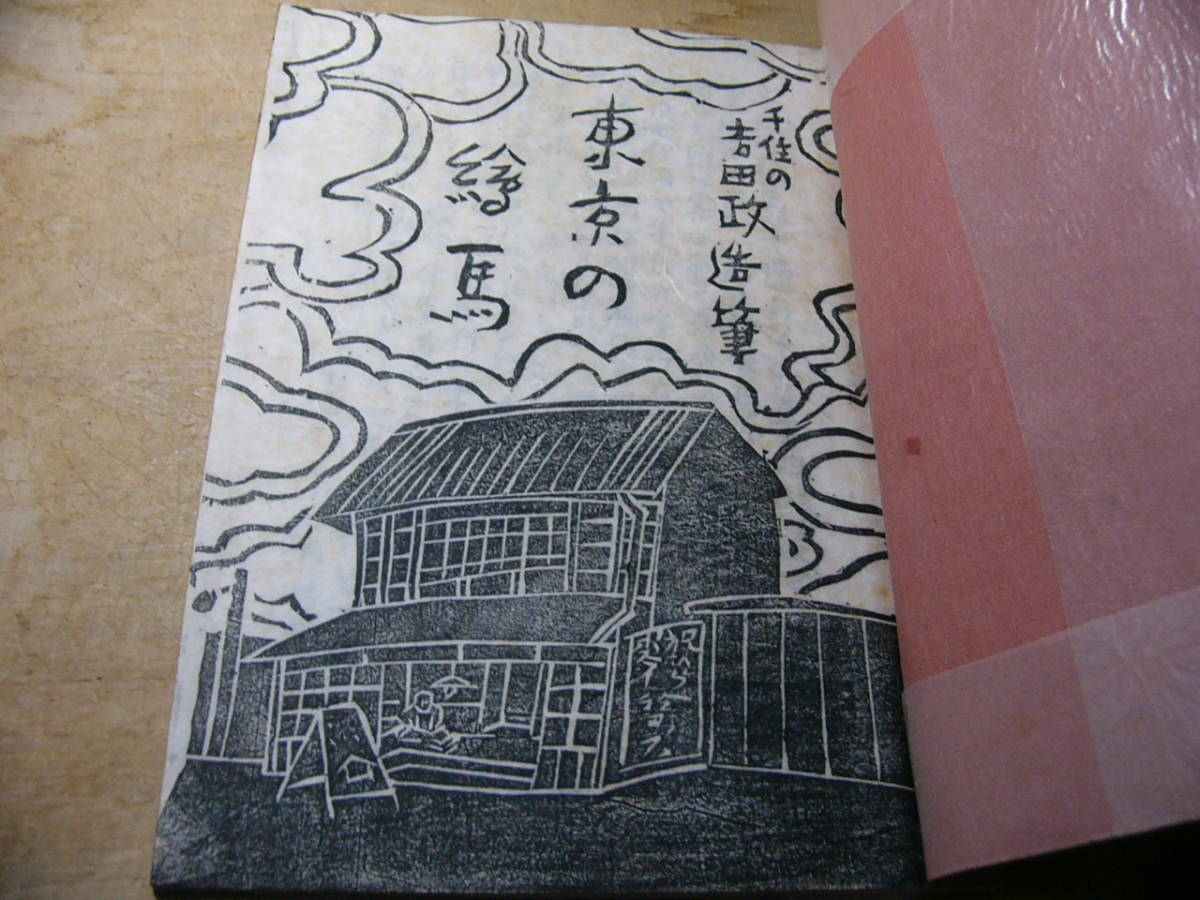 千住の
吉田政造筆
東京の
繪馬